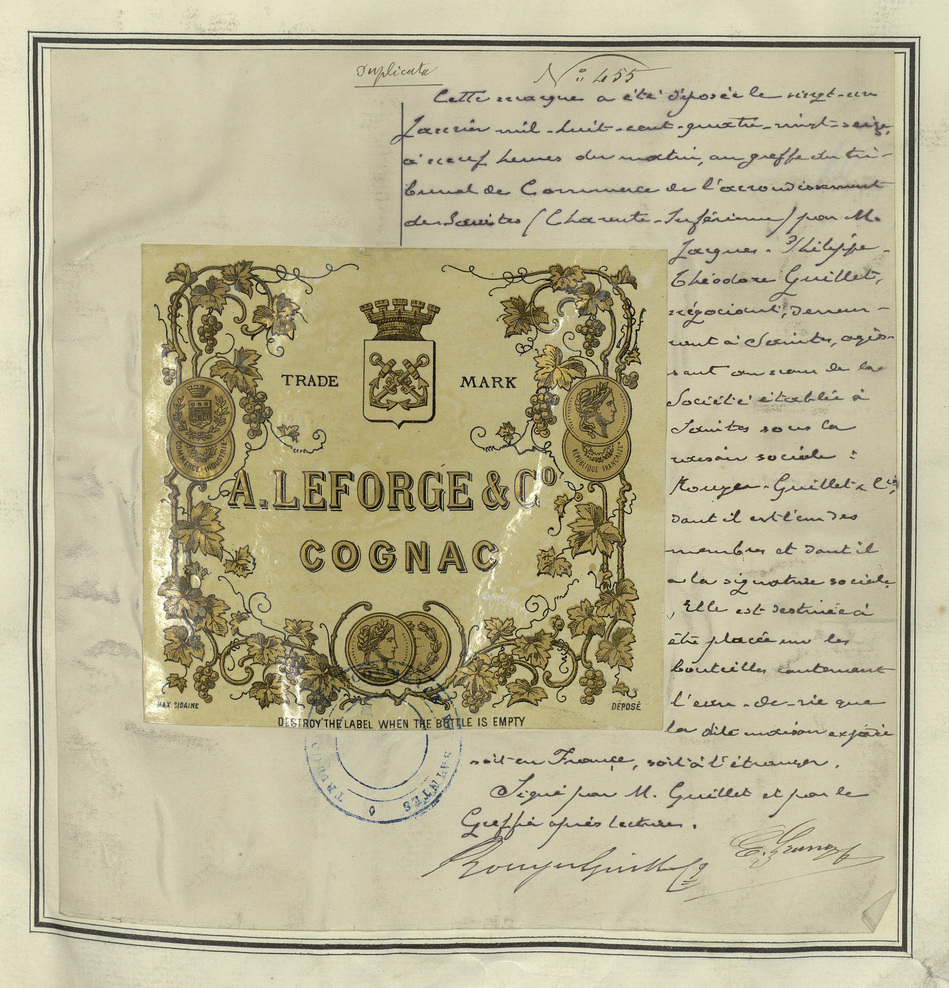 Duplicata
N° 455
Cette marque a été déposée le vingt-un
Janvier mil-huit-cent-quatre-vingt-seize,
à neuf heures du matin, au greffe du tri-
bunal de Commerce de l'arrondissement
de Saintes (Charente-Inférieure) par M.
Jacques-Philippe-
Théodore Guillet,
négociant, demeu-
rant à Saintes, agis-
sant au nom de la
Société établie à
Saintes sous la
raison sociale :
Rouyer-Guillet & Cie,
dont il est l'un des
membres et dont il
a la signature sociale.
Elle est destinée à
être placée sur les
bouteilles contenant
l'eau-de-vie que
la dite maison expédie
soit en France, soit à l'étranger.
Signé par M. Guillet et par le
Greffier après lecture.
Rouyer Guillet
TRADE MARK
COMMERCE INDUSTRIE
REPUBLIQUE FRANÇAISE
A. LEFORGE & Co
COGNAC
MAX. SIDAINE
DÉPOSÉ
DESTROY THE LABEL WHEN THE BOTTLE IS EMPTY
SAINTES